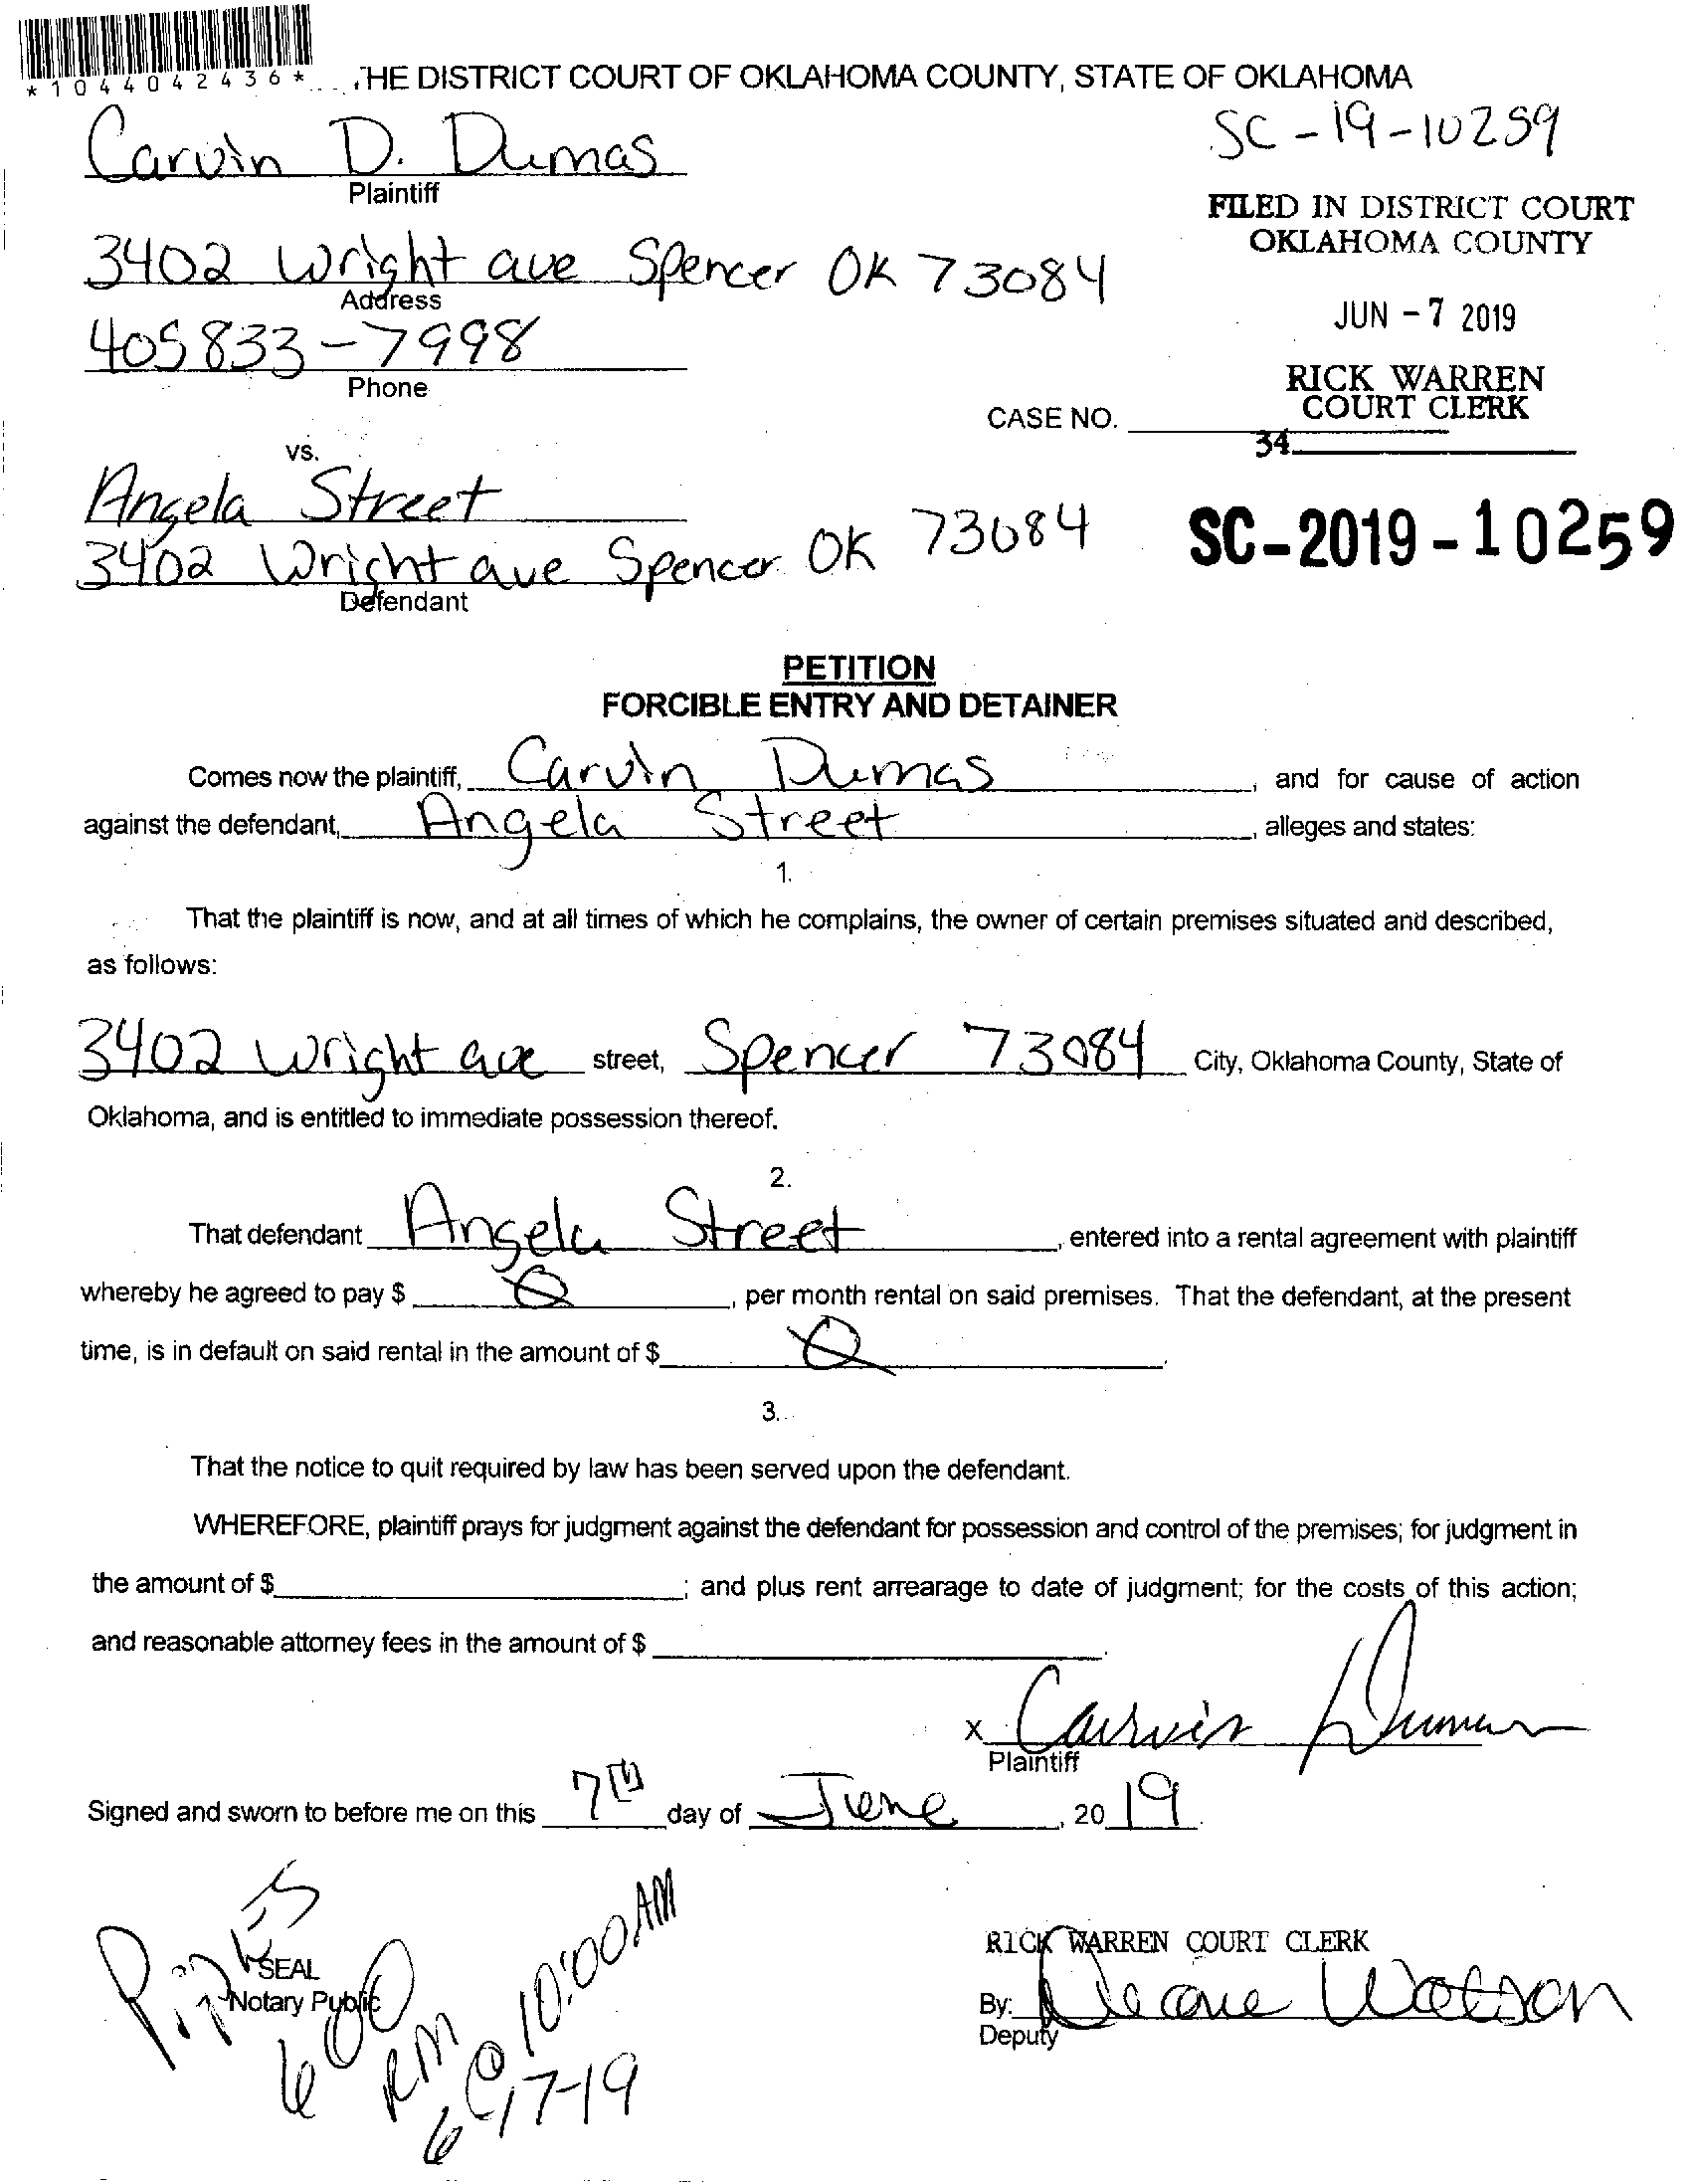 *1044042436*
THE DISTRICT COURT OF OKLAHOMA COUNTY, STATE OF OKLAHOMA
Carvin D. Dumas
Plaintiff
SC-19-10259
FILED IN DISTRICT COURT
OKLAHOMA COUNTY
3402 Wright ave Spencer OK 73084
Address
JUN - 7 2019
405 833-7998
Phone
RICK WARREN
COURT CLERK
CASE NO.
34
vs.
Angela Street
3402 Wright ave Spencer OK 73084
Defendant
SC-2019-10259
PETITION
FORCIBLE ENTRY AND DETAINER
Comes now the plaintiff, Carvin Dumas, and for cause of action
against the defendant, Angela Street, alleges and states:
1.
That the plaintiff is now, and at all times of which he complains, the owner of certain premises situated and described,
as follows:
3402 Wright ave street, Spencer 73084 City, Oklahoma County, State of
Oklahoma, and is entitled to immediate possession thereof.
2.
That defendant Angela Street, entered into a rental agreement with plaintiff
whereby he agreed to pay $ 0, per month rental on said premises. That the defendant, at the present
time, is in default on said rental in the amount of $ 0.
3.
That the notice to quit required by law has been served upon the defendant.
WHEREFORE, plaintiff prays for judgment against the defendant for possession and control of the premises; for judgment in
the amount of $ ; and plus rent arrearage to date of judgment; for the costs of this action;
and reasonable attorney fees in the amount of $ .
x Carvin Dumas
Plaintiff
Signed and sworn to before me on this 7th day of June, 2019.
SEAL
Notary Public
600
RM
@ 10:00 AM
6-17-19
RICK WARREN COURT CLERK
By: Watson
Deputy